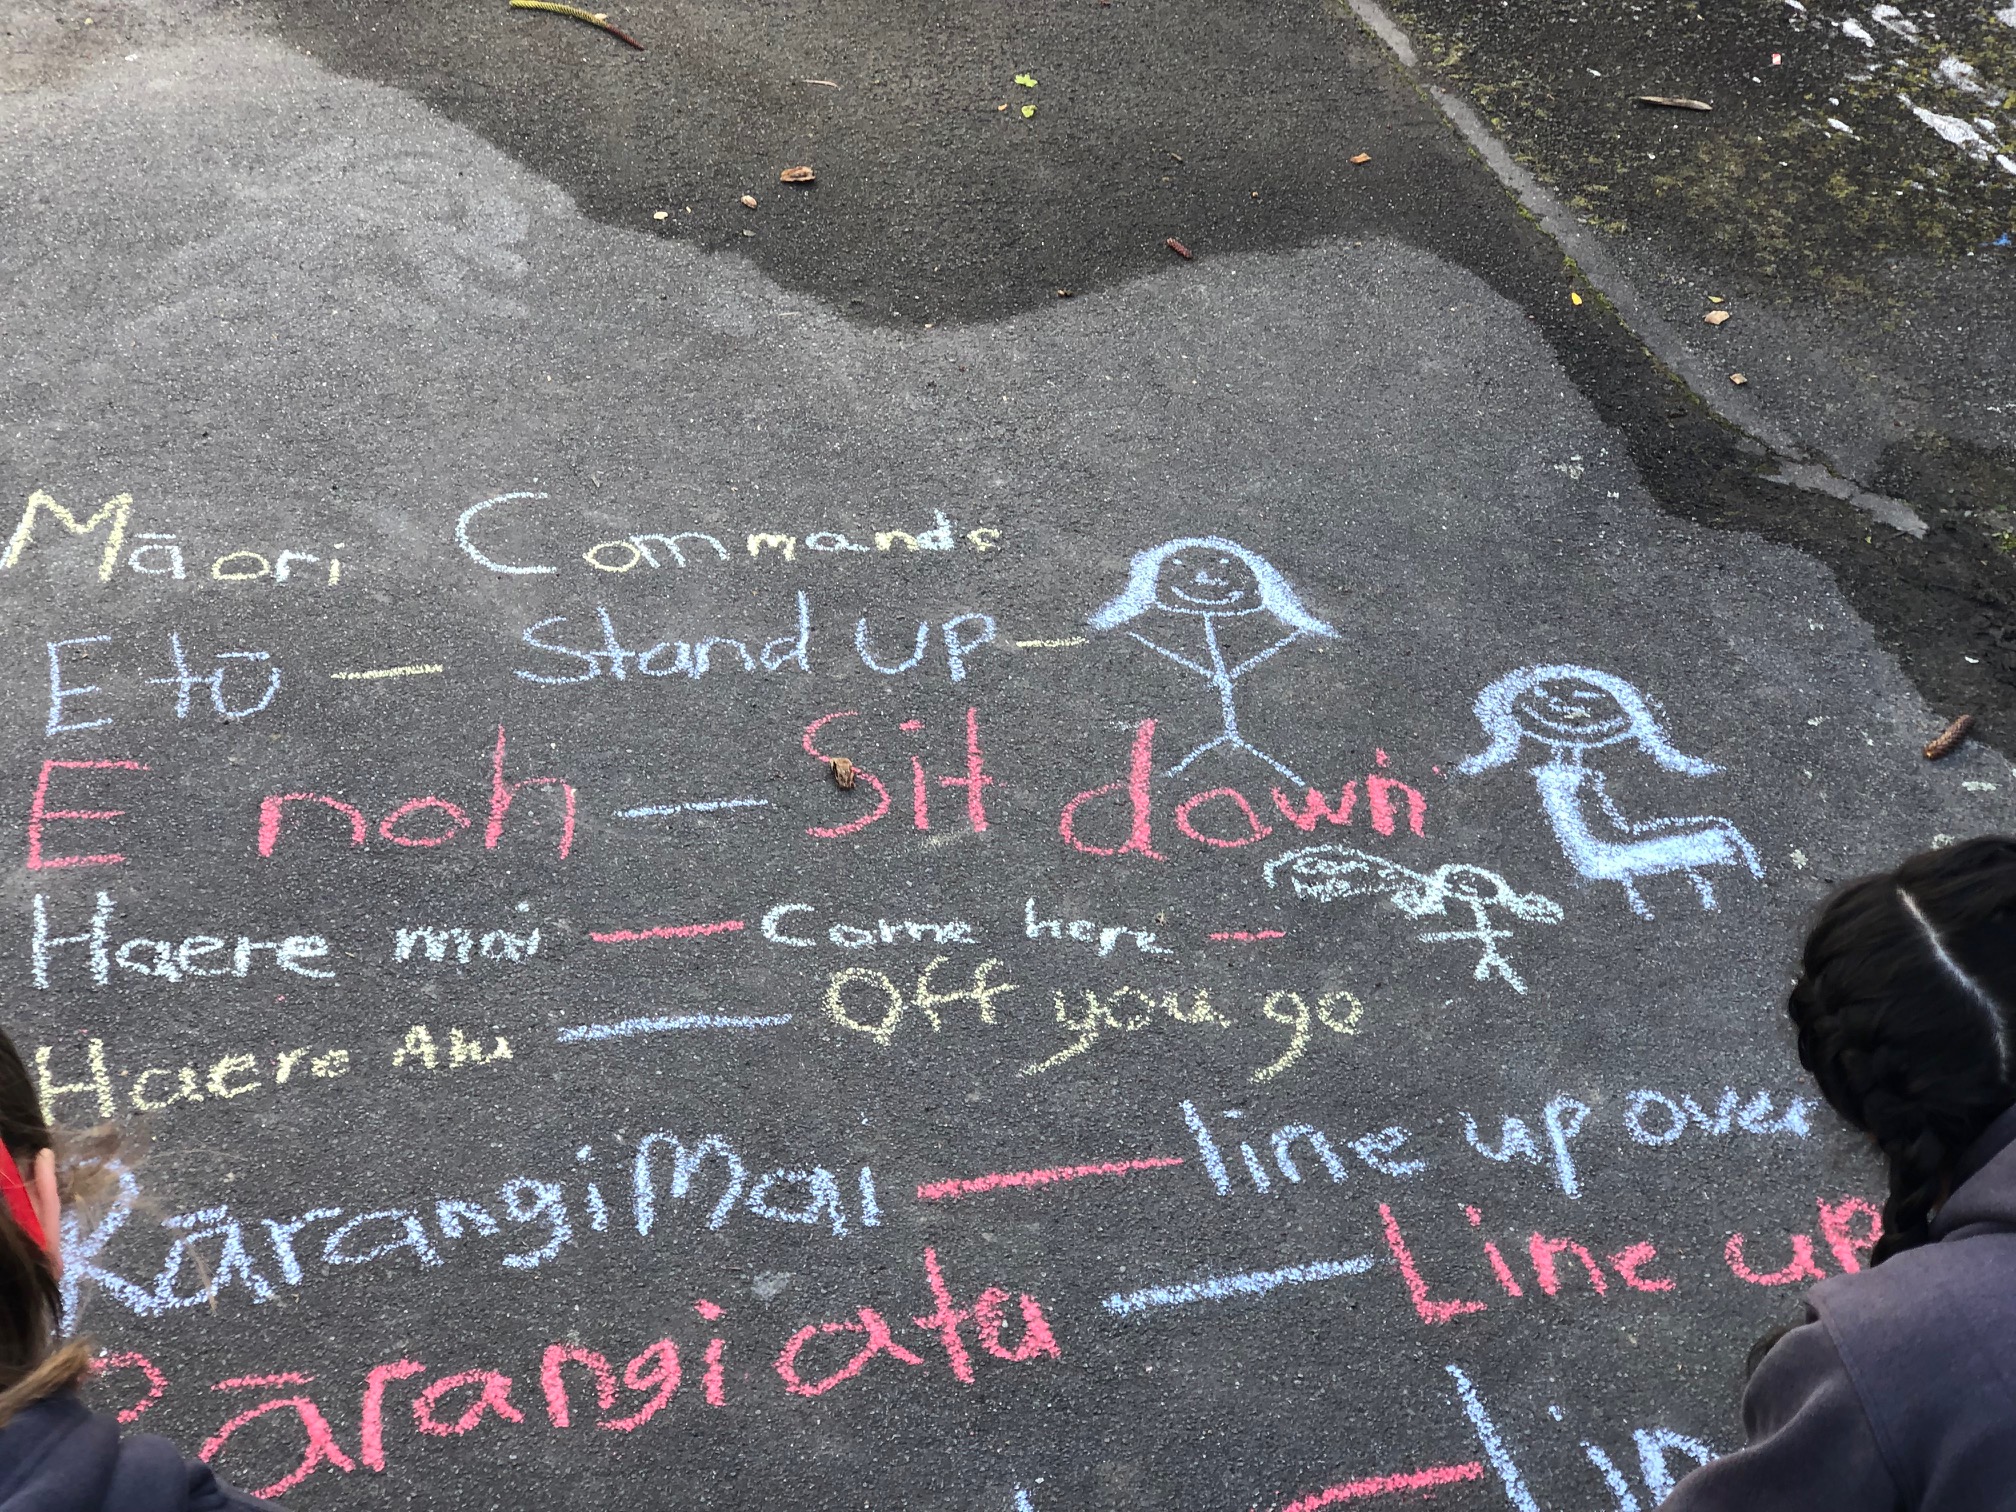 Māori Commands
E tū — Stand up —
E noh — Sit down
Haere mai — Come here —
Haere Atu — Off you go
Rārangi Mai — line up over
Rārangi atu — Line up
— lin